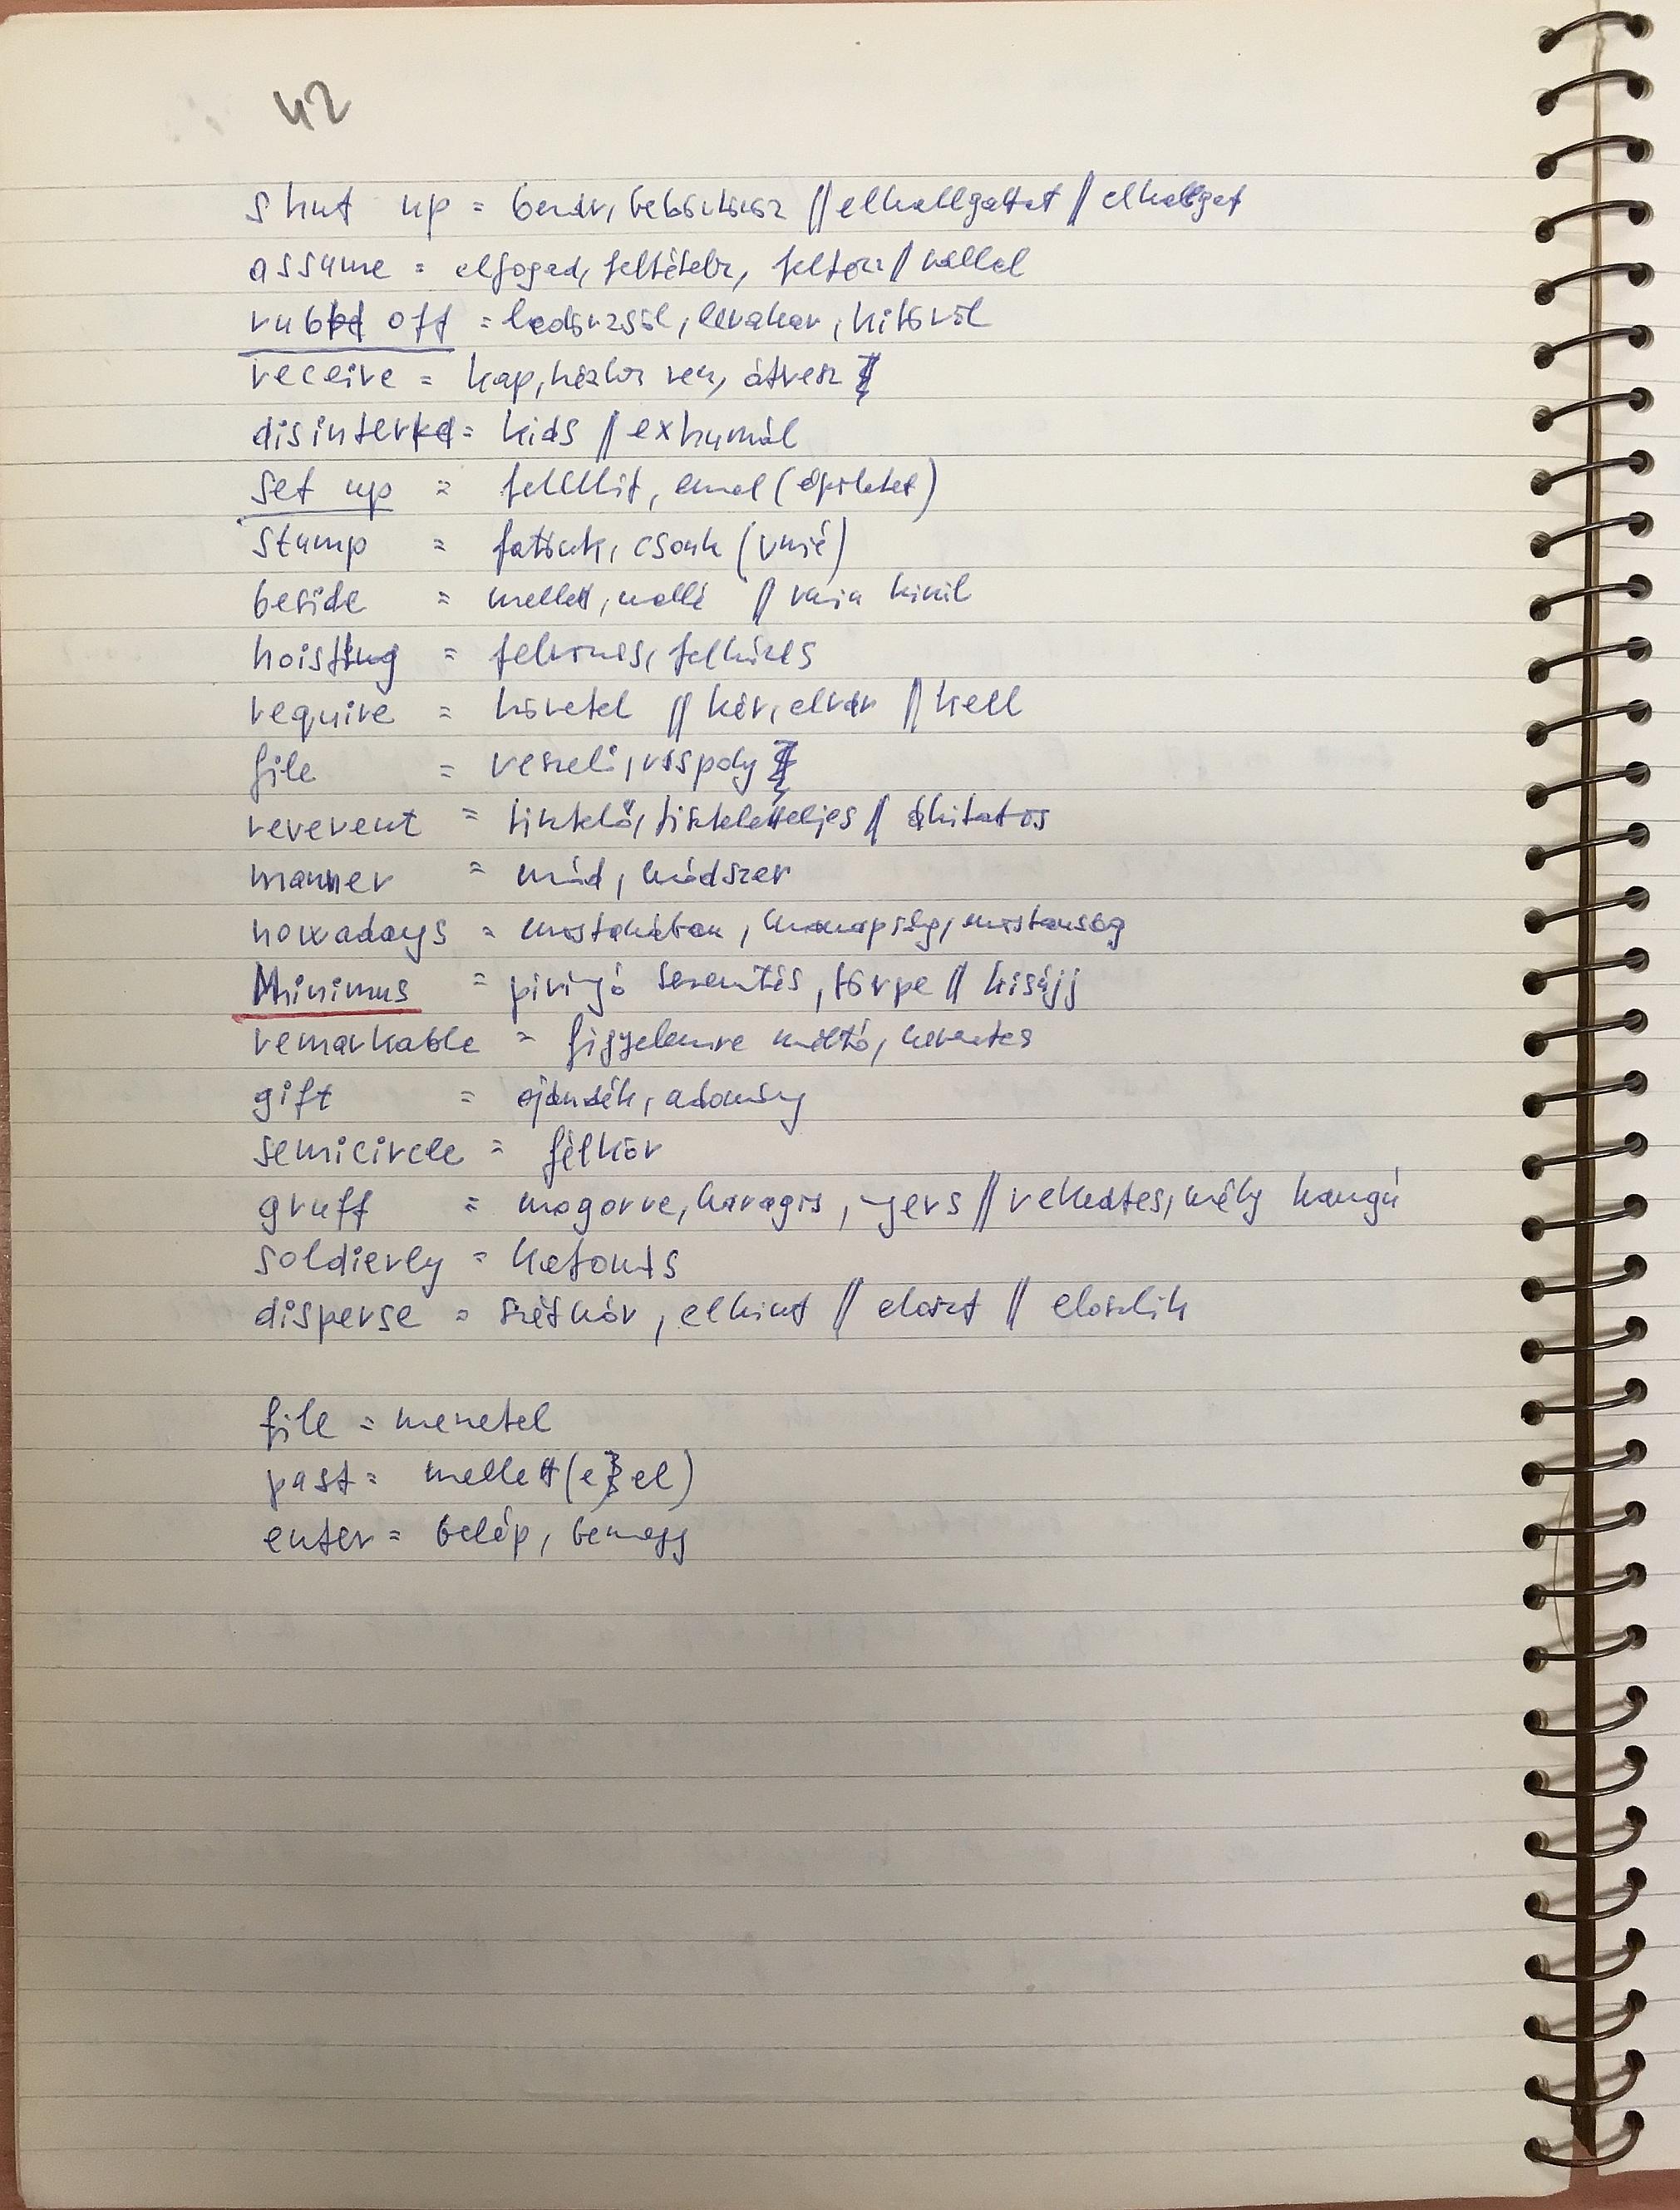 42
shut up = bezár, bebörtönöz // elhallgattat // elhallgat
assume = elfogad, feltételez, feltesz // vállal
rub off = ledörzsöl, levakar, kitöröl
receive = kap, kézhez vesz, átvesz
disinter = kiás // exhumál
set up = felállít, emel (épületet)
stump = fatönk, csonk (vmié)
beside = mellett, mellé // vmin kívül
hoisting = felvonás, felhúzás
require = követel // kér, elvár // kell
file = reszelő, ráspoly
reverent = tisztelő, tiszteletteljes // áhitatos
manner = mód, módszer
nowadays = mostanában, manapság, mostanság
Minimus = piringó teremtés, törpe // kisujj
remarkable = figyelemre méltó, nevezetes
gift = ajándék, adomány
semicircle = félkör
gruff = mogorva, haragos, nyers // rekedtes, mély hangú
soldierly = katonás
disperse = szétszór, elhint // eloszt // eloszlik
file = menetel
past = mellett (el)
enter = belép, bemegy